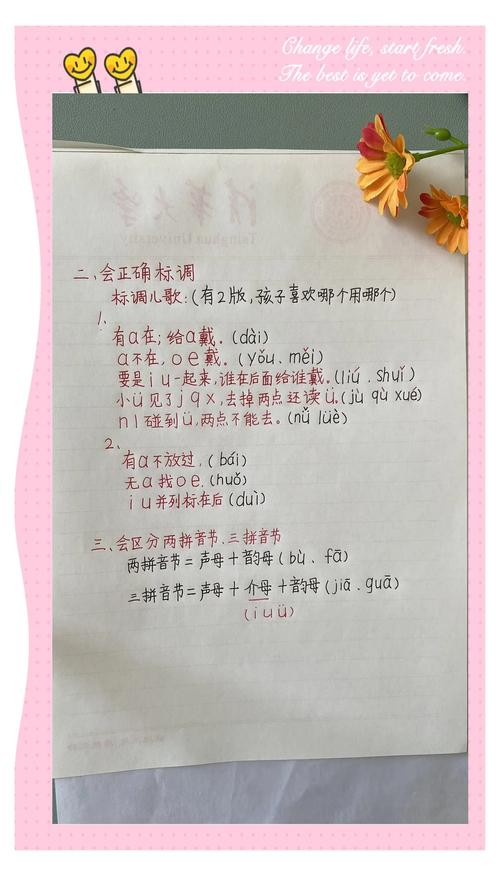 Change life, start fresh.
The best is yet to come.
清华大学
Tsinghua University
二、会正确标调
标调儿歌:(有2版,孩子喜欢哪个用哪个)
1、
有ɑ在;给ɑ戴。(dài)
ɑ不在,oe戴。(yǒu、měi)
要是iu一起来,谁在后面给谁戴。(liú、shuǐ)
小ü见了jqx,去掉两点还读ü。(jù qù xué)
nl碰到ü,两点不能去。(nǚ lüè)
2、
有ɑ不放过,(bái)
无ɑ找oe。(huǒ)
iu并列标在后(duì)
三、会区分两拼音节、三拼音节
两拼音节=声母+韵母(bù、fā)
三拼音节=声母+介母+韵母(jiā、guā)
(iuü)